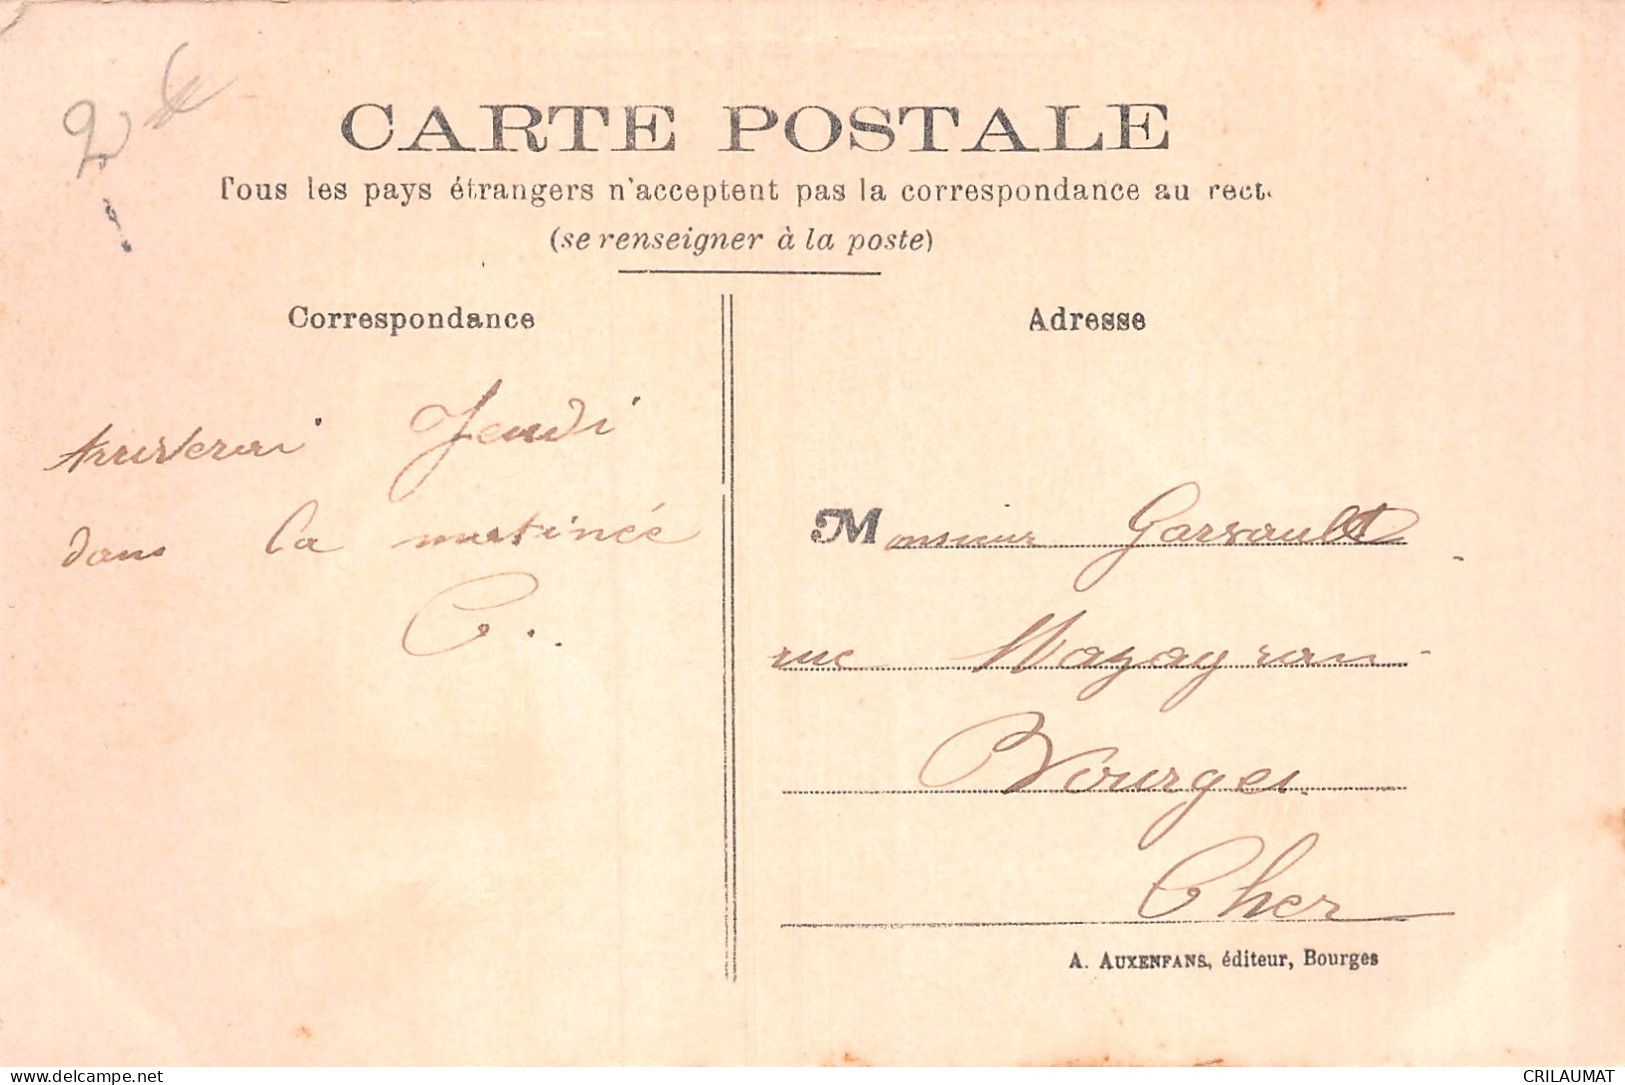 CARTE POSTALE
Tous les pays étrangers n'acceptent pas la correspondance au rect
(se renseigner à la poste)
Correspondance
Arriverai Jeudi
dans la matinée
C..
Adresse
Monsieur Garsault
rue Mazagran
Bourges
Cher
A. AUXENFANS, éditeur, Bourges
https://www.delcampe.net
CRILAUMAT